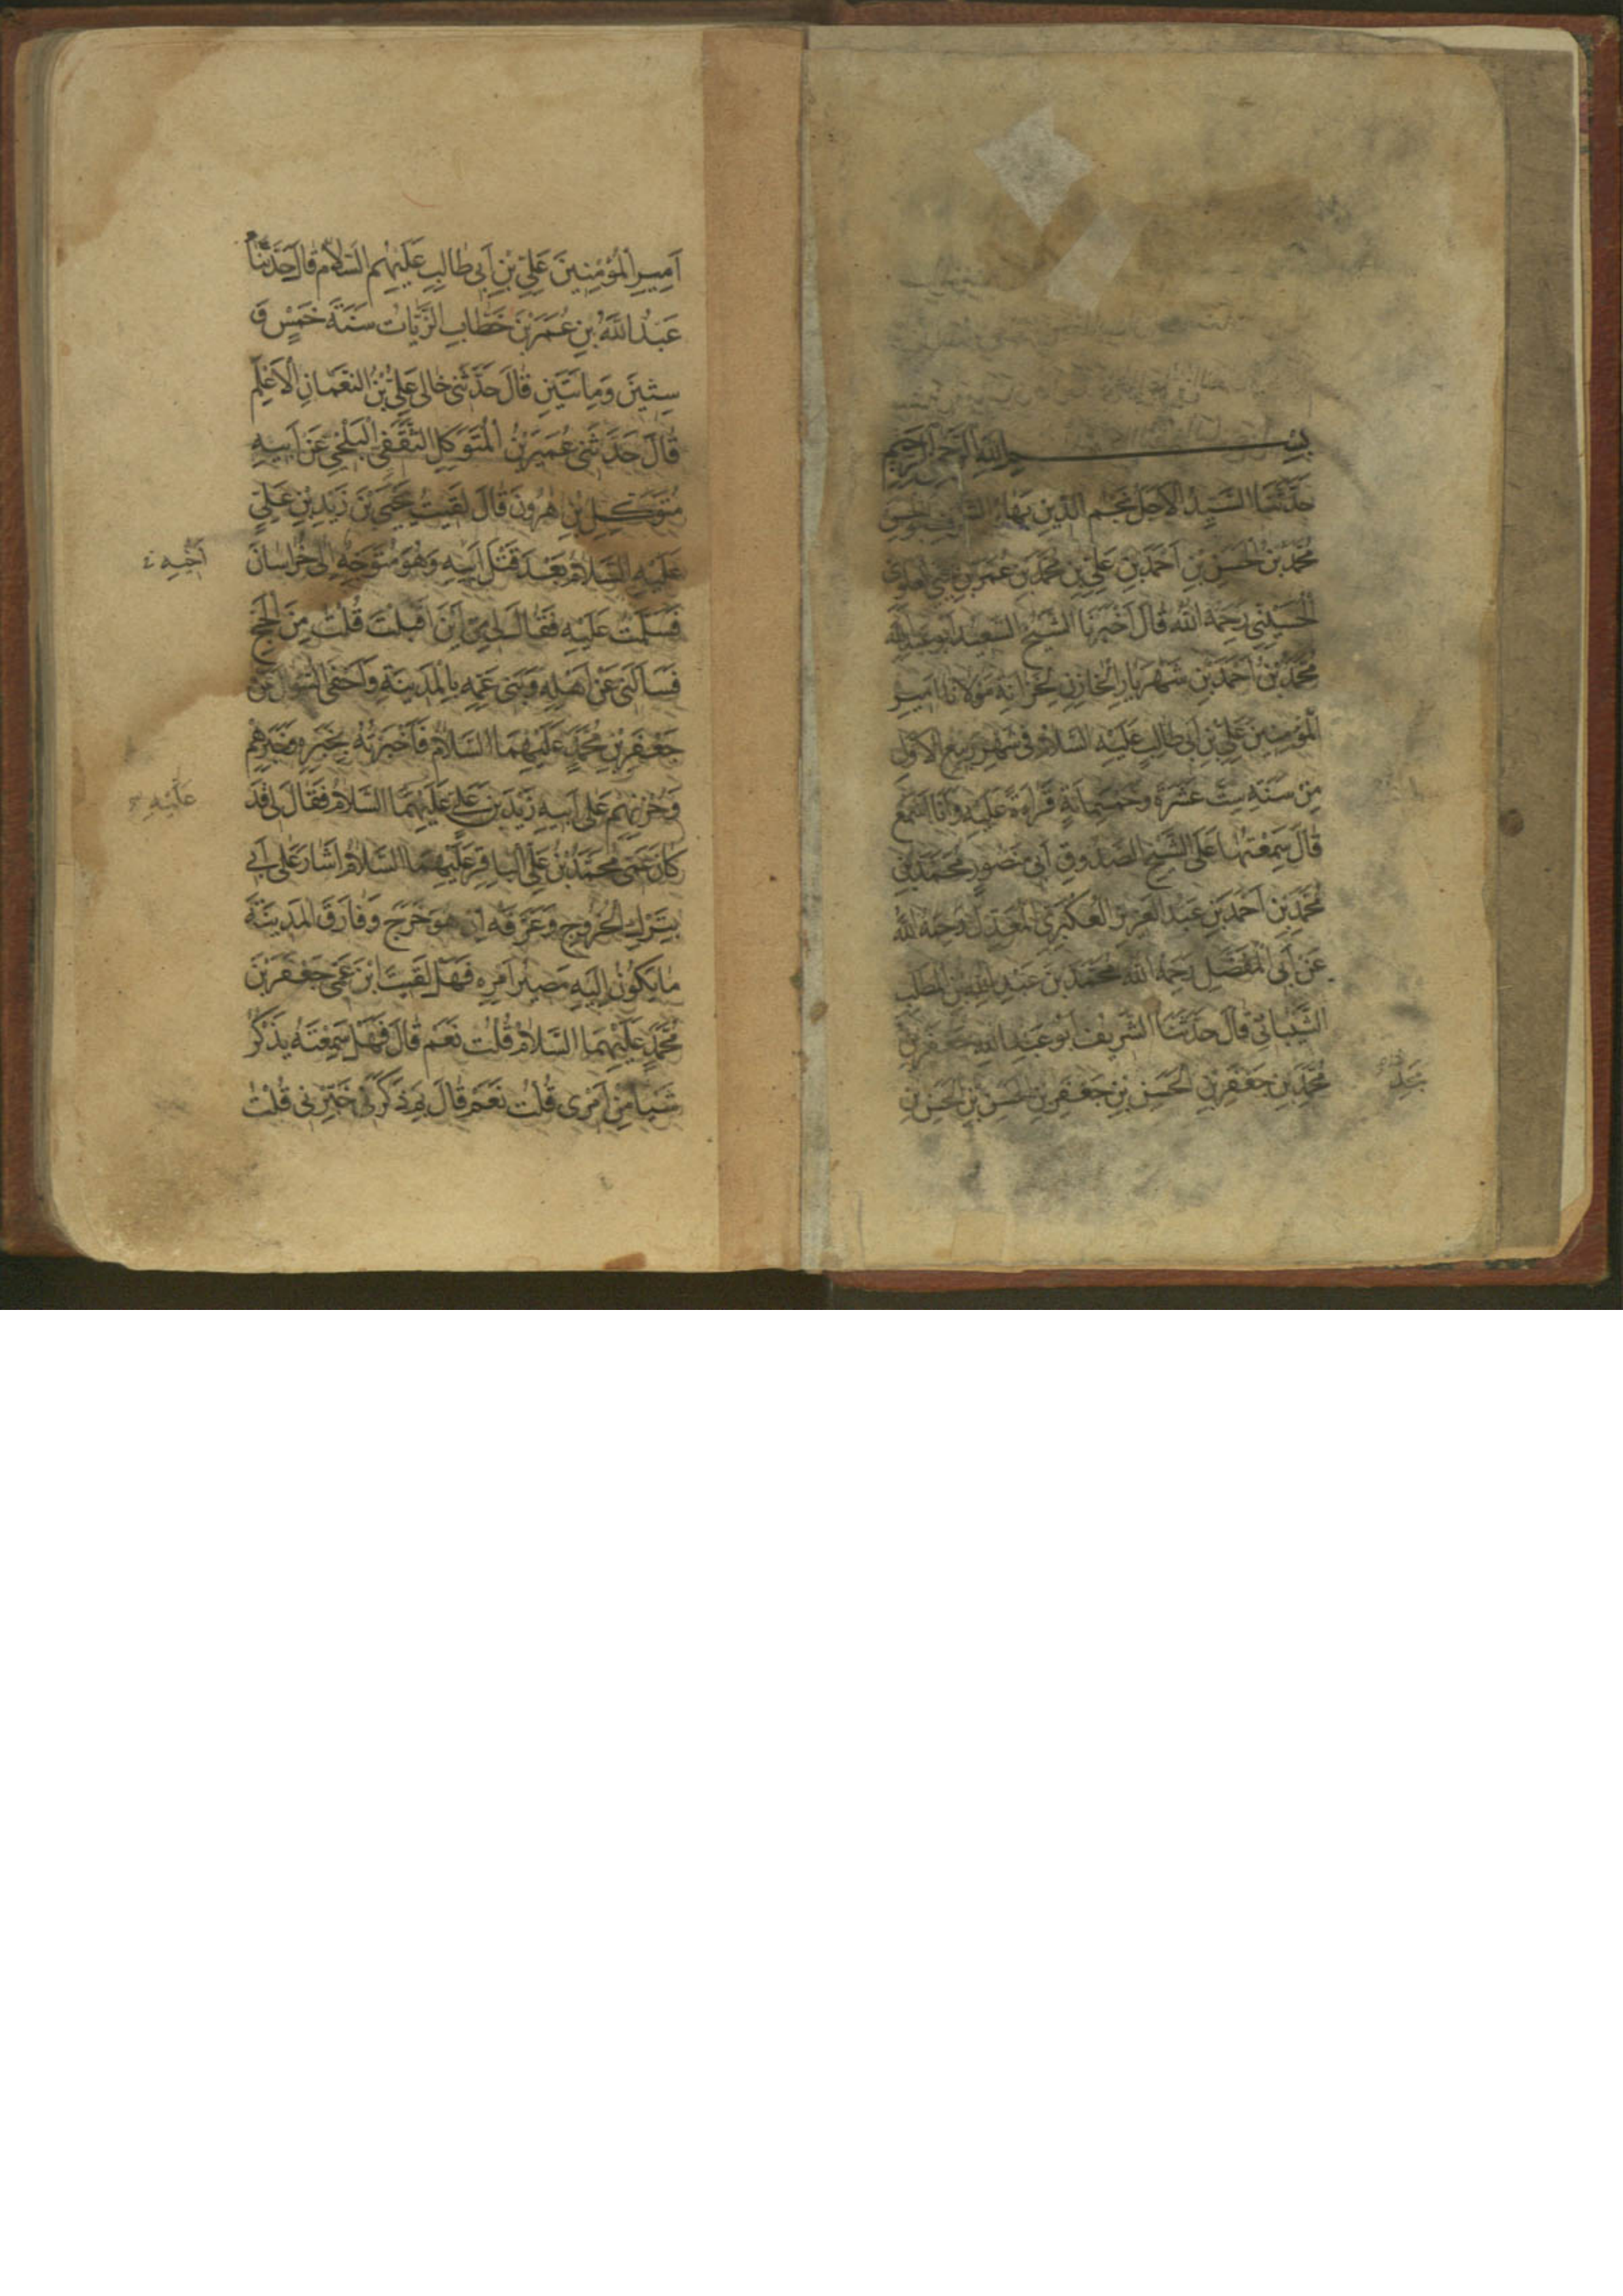 بِسْمِ اللَّهِ الرَّحْمٰنِ الرَّحِيمِ
حَدَّثَنَا السَّيِّدُ الْاَجَلُّ نَجْمُ الدِّينِ بَهَاءُ
مُحَمَّدُ بْنُ الْحَسَنِ بْنِ اَحْمَدَ بْنِ عَلِيِّ بْنِ مُحَمَّدِ بْنِ عُمَرَ بْنِ يَحْيَى الْعَلَوِيُّ
الْحُسَيْنِيُّ رَحِمَهُ اللَّهُ قَالَ اَخْبَرَنَا الشَّيْخُ السَّعِيدُ اَبُو عَبْدِ اللَّهِ
مُحَمَّدُ بْنُ اَحْمَدَ بْنِ شَهْرِيَارَ الْخَازِنُ لِخِزَانَةِ مَوْلَانَا اَمِيرِ
الْمُؤْمِنِينَ عَلِيِّ بْنِ اَبِي طَالِبٍ عَلَيْهِ السَّلَامُ فِي شَهْرِ رَبِيعِ الْاَوَّلِ
مِنْ سَنَةِ سِتَّ عَشْرَةَ وَخَمْسِمِائَةٍ قِرَاءَةً عَلَيْهِ وَاَنَا اَسْمَعُ
قَالَ سَمِعْتُهَا عَلَى الشَّيْخِ الصَّدُوقِ اَبِي مَنْصُورٍ مُحَمَّدِ بْنِ
مُحَمَّدِ بْنِ اَحْمَدَ بْنِ عَبْدِ الْعَزِيزِ الْعُكْبَرِيِّ الْمُعَدَّلِ رَحِمَهُ اللَّهُ
عَنْ اَبِي الْمُفَضَّلِ رَحِمَهُ اللَّهُ مُحَمَّدِ بْنِ عَبْدِ اللَّهِ بْنِ الْمُطَّلِبِ
الشَّيْبَانِيِّ قَالَ حَدَّثَنَا الشَّرِيفُ اَبُو عَبْدِ اللَّهِ جَعْفَرُ بْنُ
مُحَمَّدِ بْنِ جَعْفَرِ بْنِ الْحَسَنِ بْنِ جَعْفَرِ بْنِ الْحَسَنِ بْنِ الْحَسَنِ بْنِ
اَمِيرِ الْمُؤْمِنِينَ عَلِيِّ بْنِ اَبِي طَالِبٍ عَلَيْهِمُ السَّلَامُ قَالَ حَدَّثَنَا
عَبْدُ اللَّهِ بْنِ عُمَرَ بْنِ خَطَّابِ الزَّيَّاتُ سَنَةَ خَمْسٍ وَ
سِتِّينَ وَمِاتَيْنِ قَالَ حَدَّثَنِي خَالِي عَلِيُّ بْنُ النُّعْمَانِ الْاَعْلَمُ
قَالَ حَدَّثَنِي عُمَيْرُ بْنُ الْمُتَوَكِّلِ الثَّقَفِيُّ الْبَلْخِيُّ عَنْ اَبِيهِ
مُتَوَكِّلِ بْنِ هٰرُونَ قَالَ لَقِيتُ يَحْيَى بْنَ زَيْدِ بْنِ عَلِيٍّ
عَلَيْهِ السَّلَامُ بَعْدَ قَتْلِ اَبِيهِ وَهُوَ مُتَوَجِّهٌ اِلَى خُرَاسَانَ
فَسَلَّمْتُ عَلَيْهِ فَقَالَ لِي مِنْ اَيْنَ اَقْبَلْتَ قُلْتُ مِنَ الْحَجِّ
فَسَاَلَنِي عَنْ اَهْلِهِ وَبَنِي عَمِّهِ بِالْمَدِينَةِ وَاَحْفَى السُّؤَالَ عَنْ
جَعْفَرِ بْنِ مُحَمَّدٍ عَلَيْهِمَا السَّلَامُ فَاَخْبَرْتُهُ بِخَبَرِهِ وَخَبَرِهِمْ
وَحُزْنِهِمْ عَلَى اَبِيهِ زَيْدِ بْنِ عَلِيٍّ عَلَيْهِمَا السَّلَامُ فَقَالَ لِي قَدْ
عَلَيْهِ
كَانَ عَمِّي مُحَمَّدُ بْنُ عَلِيٍّ الْبَاقِرُ عَلَيْهِمَا السَّلَامُ اَشَارَ عَلَى اَبِي
بِتَرْكِ الْخُرُوجِ وَعَرَّفَهُ اِنْ هُوَ خَرَجَ وَفَارَقَ الْمَدِينَةَ
مَا يَكُونُ اِلَيْهِ مَصِيرُ اَمْرِهِ فَهَلْ لَقِيتَ ابْنَ عَمِّي جَعْفَرَ بْنَ
مُحَمَّدٍ عَلَيْهِمَا السَّلَامُ قُلْتُ نَعَمْ قَالَ فَهَلْ سَمِعْتَهُ يَذْكُرُ
شَيْاً مِنْ اَمْرِي قُلْتُ نَعَمْ قَالَ بِمَ ذَكَرَنِي خَبِّرْنِي قُلْتُ